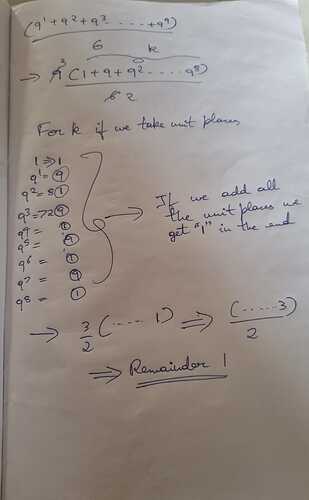 (9¹ + 9² + 9³ ----- + 9⁹)
6
k
→ 9 3 (1 + 9 + 9² ----- 9⁸)
6 2
For k if we take unit places
1 ⇒ 1
9¹ = 9
9² = 81
9³ = 729
9⁴ = 1
9⁵ = 9
9⁶ = 1
9⁷ = 9
9⁸ = 1
→ If we add all
the unit places we
get "1" in the end
→ 3/2 (----- 1) ⇒ (.....3)/2
⇒ Remainder 1